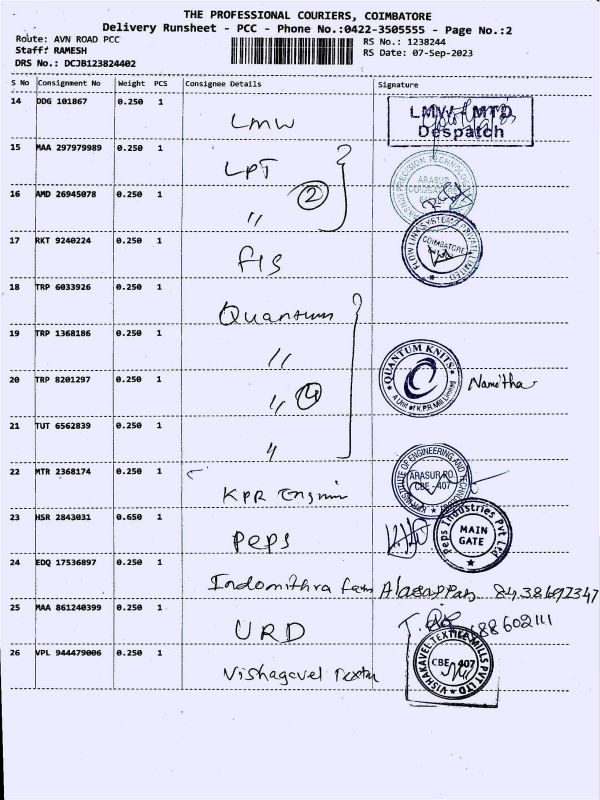 THE PROFESSIONAL COURIERS, COIMBATORE
Delivery Runsheet - PCC - Phone No.:0422-3505555 - Page No.:2
Route: AVN ROAD PCC
RS No.: 1238244
Staff: RAMESH
RS Date: 07-Sep-2023
DRS No.: DCJB123824402
S No Consignment No Weight PCS Consignee Details Signature
14 DDG 101867 0.250 1 LMW
LMW / MTD
Despatch
15 MAA 297979989 0.250 1 LPT
PRECISION TECHNOLOG
ARASUR
COIMBATORE
16 AMD 26945078 0.250 1 〃 2
17 RKT 9240224 0.250 1 fls
FLOW LINK SYSTEMS PRIVATE LIMITED
COIMBATORE
18 TRP 6033926 0.250 1 Quantum
19 TRP 1368186 0.250 1 〃
20 TRP 8201297 0.250 1 〃 4
QUANTUM KNITS
A Unit of K.P.R Mill Limited
Namitha
21 TUT 6562839 0.250 1 〃
22 MTR 2368174 0.250 1 KPR
INSTITUTE OF ENGINEERING AND
ARASUR PO
CBE - 407
23 HSR 2843031 0.650 1 Peps
Peps Industries Pvt Ltd
MAIN
GATE
24 EDQ 17536897 0.250 1 Indomithra
25 MAA 861240399 0.250 1 URD
26 VPL 944479006 0.250 1 Vishagavel
VISHAKAVEL TEXTILE MILLS PVT LTD
CBE 407